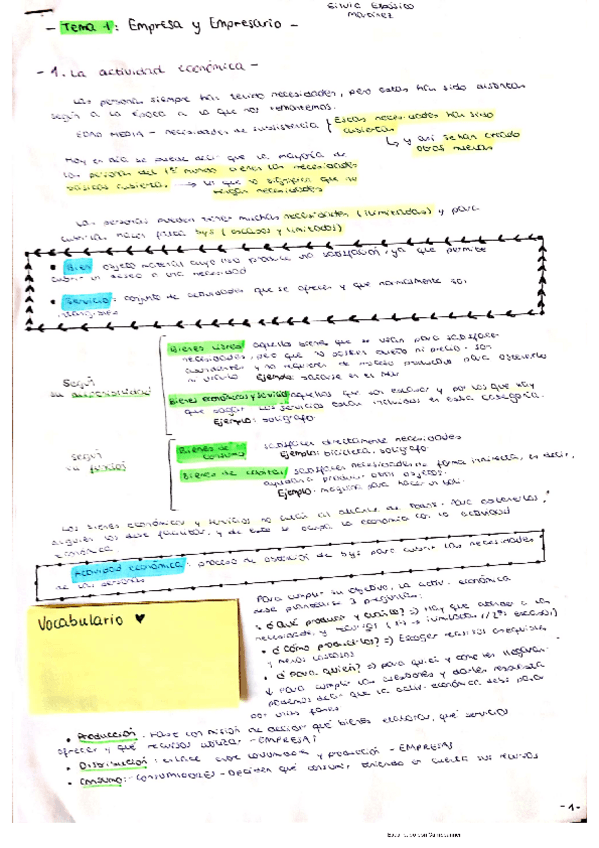 - Tema 1: Empresa y Empresario -
- 1. La actividad económica -
Las personas siempre han tenido necesidades, pero estas han sido distintas
según a la época a la que nos remontemos.
EDAD MEDIA - necesidades de subsistencia { Estas necesidades han sido
cubiertas
↳ y así se han creado
otras nuevas
Hoy en día se puede decir que la mayoría de
las personas del 1er mundo tienen las necesidades
básicas cubiertas. → lo que no significa que no
tengan necesidades
Las personas pueden tener muchas necesidades (ilimitadas) y para
cubrirlas hacen falta bys (escasos y limitados)
• Bien: objeto material cuyo uso produce una satisfacción, ya que permite
cubrir un deseo o una necesidad
• Servicio: conjunto de actividades que se ofrecen y que normalmente son
intangibles
Según
su
Bienes libres: aquellos bienes que se usan para satisfacer
necesidades, pero que no poseen dueño ni precio. Son
abundantes y no requieren de proceso productivo para obtenerlo
Ejemplo: bañarse en el mar
Bienes económicos y servicios: aquellos que son escasos y por los que hay
que pagar. Los servicios están incluidos en esta categoría.
Ejemplo: bolígrafo
según
su función
Bienes de consumo: satisfacen directamente necesidades
Ejemplo: bicicleta, bolígrafo
Bienes de capital: satisfacen necesidades de forma indirecta, es decir,
ayudan a producir otros objetos.
Ejemplo: máquina para hacer un boli.
Los bienes económicos y servicios no están al alcance de todos. Para obtenerlos,
alguien los debe fabricar, y de esto se ocupa la economía con la actividad
económica.
Actividad económica: proceso de obtención de bys para cubrir las necesidades
de las personas
Vocabulario ♥
Para cumplir su objetivo, la activ. económica
debe plantearse 3 preguntas:
• ¿Qué producir y cuánto? => Hay que atender a las
necesidades y recursos
• ¿Cómo producirlos? => Escoger recursos
y menos costosos
• ¿Para quién? => para quién y cómo les llegarán
↓ Para cumplir las cuestiones y darles respuesta
podemos decir que la activ. económica debe pasar
por unas fases
• Producción: Fase con misión de decidir qué bienes elaborar, qué servicios
ofrecer y qué recursos utilizar - EMPRESAS
• Distribución: enlace entre consumidores y producción - EMPRESAS
• Consumo: CONSUMIDORES - Deciden qué consumir, teniendo en cuenta sus recursos
-1-